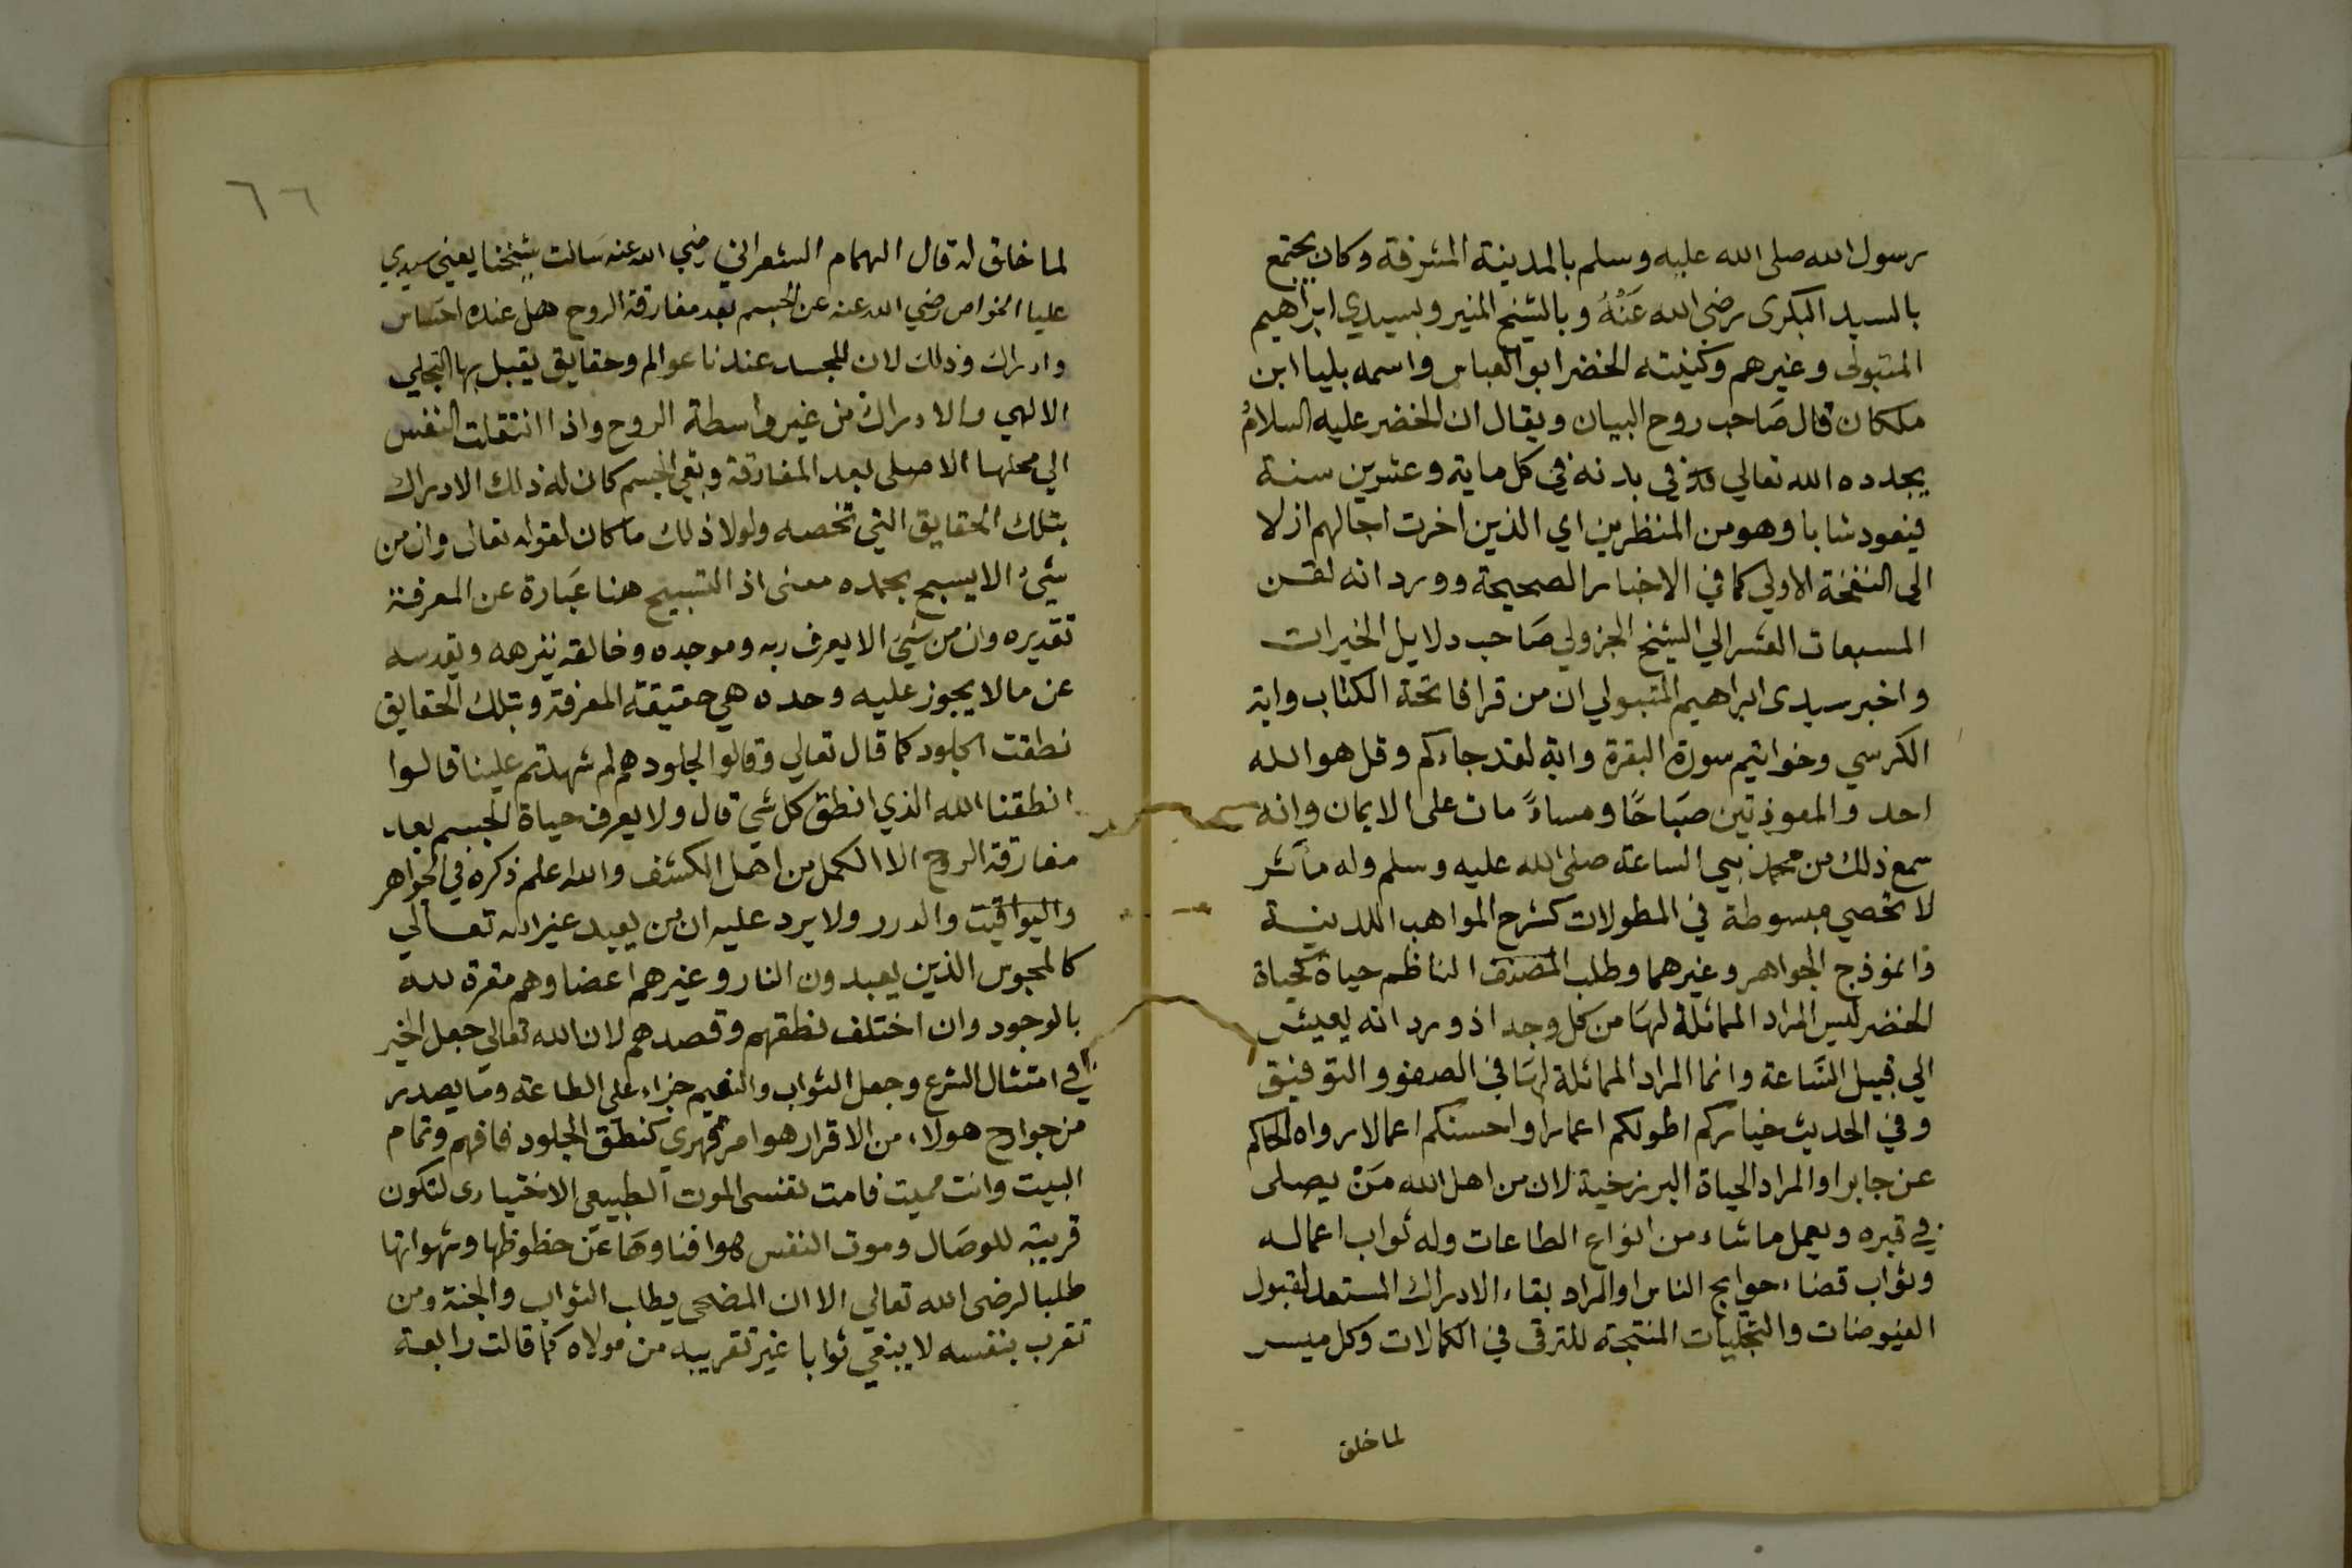 رسول الله صلى الله عليه وسلم بالمدينة المشرفة وكان يجتمع
بالسيد البكرى رضى الله عَنْهُ وبالشيخ المنير وبسيدي ابراهيم
المتبولى وغيرهم وكنيته الخضر ابو العباس واسمه بليا ابن
ملكان قال صَاحب روح البيان ويقال ان الخضر عليه السلامُ
يجدده الله تعالي في بدنه في كل ماية وعشرين سنة
فيعود شابا وهو من المنظرين اي الذين اخرت اجالهم ازلا
الى النفخة الاولي كما في الاخبار الصحيحة وورد انه لقن
المسبعات العشر الي الشيخ الجزولي صَاحب دلايل الخيرات
واخبر سيدى ابراهيم المتبولي ان من قرا فاتحة الكتاب واية
الكرسي وخواتيم سورة البقرة واية لقد جاءكم وقل هو الله
احد والمعوذتين صَبَاحًا ومساءً مات على الايمان وانه
سمع ذلك من محمد نبي الساعة صلى الله عليه وسلم وله مآثر
لا تحصي مبسوطة في المطولات كشرح المواهب اللدنية
وانموذج الجواهر وغيرهما وطلب المصنف الناظم حياة كحياة
الخضر ليس المراد المماثلة لهَا من كل وجه اذ ورد انه يعيش
الي قبيل السَّاعة وانما المراد المماثلة لهَا في الصفو والتوفيق
وفي الحديث خياركم اطولكم اعمارا واحسنكم اعمالا رواه الحاكم
عن جابر او المراد الحياة البرزخية لان من اهل الله مَنْ يصلى
في قبره ويعمل ما شاء من انواع الطاعات وله ثواب اعماله
وثواب قضاء حوايج الناس او المراد بقاء الادراك المستعد لقبول
الفيوضات والتجليات المنتجة للترقى في الكمالات وكل ميسر
لما خلق
٦٦
لما خلق له قال الهمام الشعراني رضي الله عنه سَالت شيخنا يعني سيدي
عليا الخواص رضي الله عنه عن الجسم بعد مفارقة الروح هل عنده احسَاس
وادراك وذلك لان للجسد عندنا عوالم وحقايق يقبل بها التجلي
الالهي والادراك من غير واسطة الروح واذا انتقلت النفس
الي محلها الاصلى بعد المفارقة وبقي الجسم كان له ذلك الادراك
بتلك الحقايق التي تخصه ولولا ذلك ما كان لقوله تعالى وان من
شيئ الا يسبح بحمده معنى اذ التسبيح هنا عَبَارة عن المعرفة
تقديره وان من شيئ الا يعرف ربه وموجده وخالقه ينزهه ويقدسه
عن مالا يجوز عليه وحده هي حقيقة المعرفة وبتلك الحقايق
نطقت الجلود كما قال تعالي وقالوا لجلودهم لم شهدتم علينا قالوا
انطقنا الله الذي انطق كل شي قال ولا يعرف حياة الجسم بعد
مفارقة الروح الا الكمل من اهل الكشف والله اعلم ذكره في الجواهر
واليواقيت والدرر ولا يرد عليه ان من يعبد غير الله تعالي
كالمجوس الذين يعبدون النار وغيرهم اعضاوهم مقرة لله
بالوجود وان اختلف نطقهم وقصدهم لان الله تعالي جعل الخير
في امتثال الشرع وجعل الثواب والنعيم جزاء على الطاعة وما يصدر
من جوارح هولاء من الاقرار هو امر قهري كنطق الجلود فافهم وتمام
البيت وانت مميت فامت نفسى الموت الطبيعى الاختيارى لتكون
قريبة للوصَال وموت النفس هو افناوهَا عَن حظوظها وشهواتها
طلبا لرضى الله تعالي الا ان المضحى يطلب الثواب والجنة ومن
تقرب بنفسه لا يبغي ثوابا غير تقريبه من مولاه كما قالت رابعة